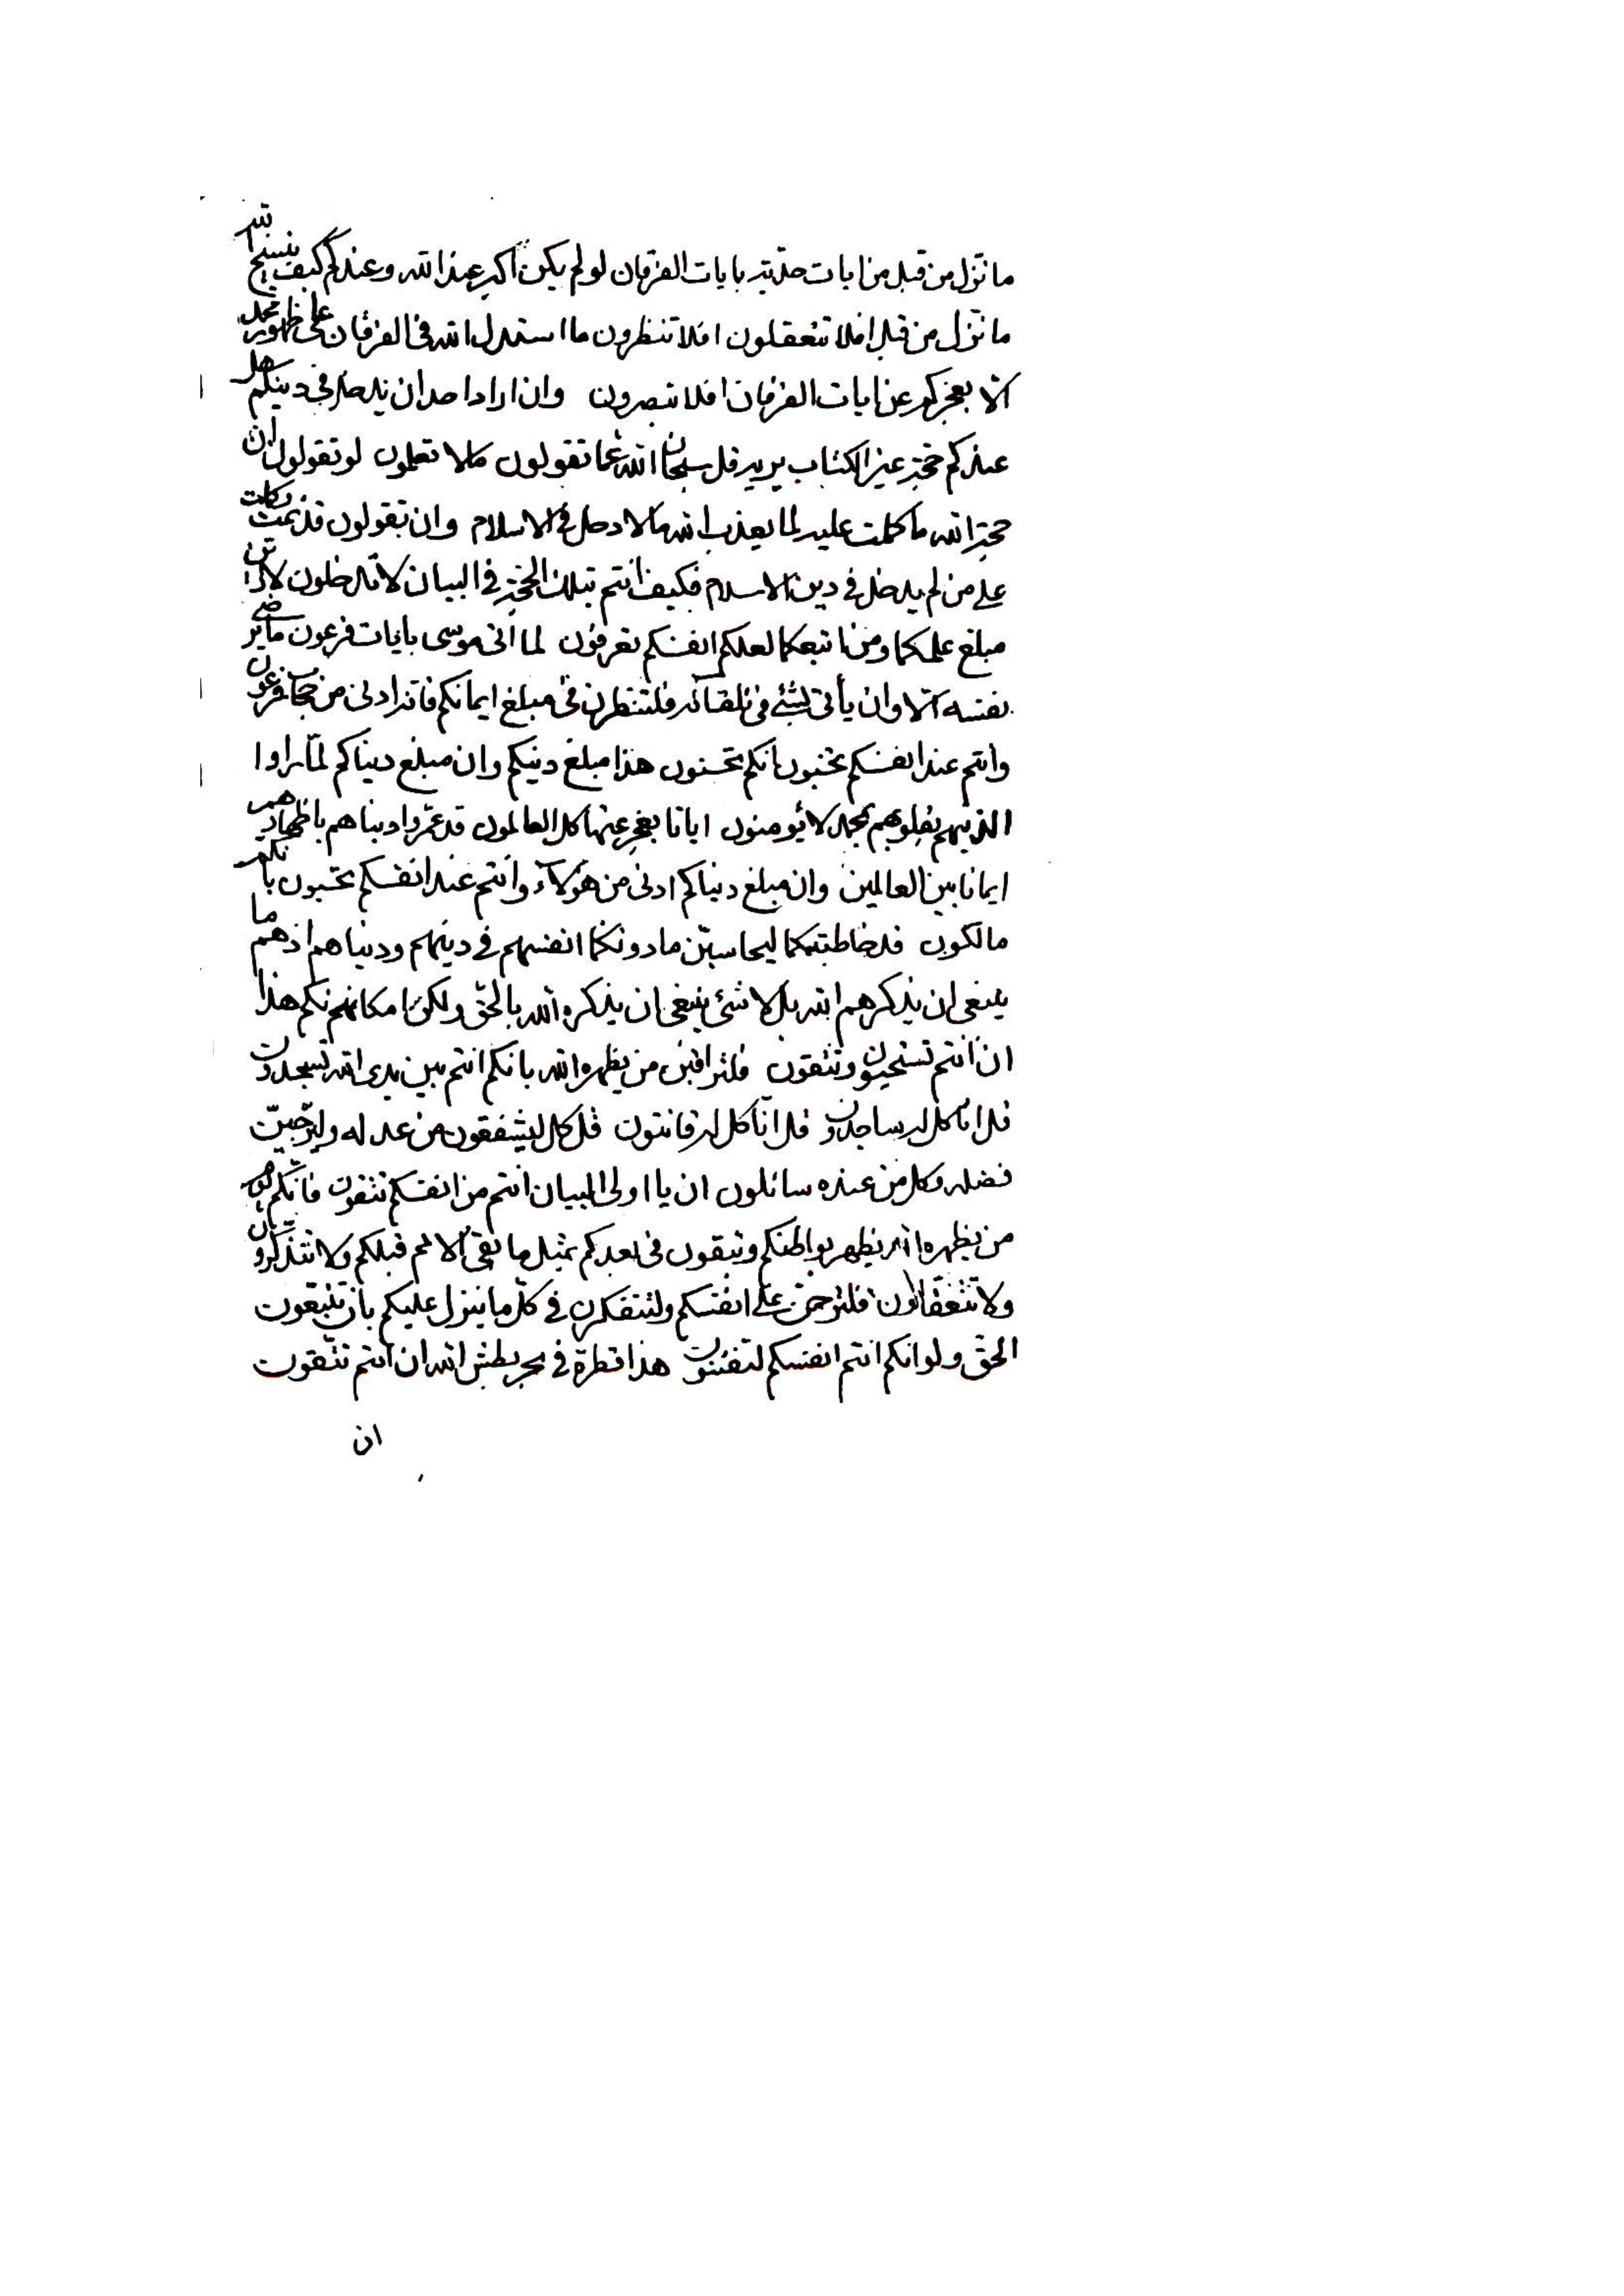 ما نزل من قبل من ايات حديّه بايات الفرقان لو لم يكن اكبر عند الله وعندكم كيف ينسخ الله
ما نزل من قبل افلا تتعقلون افلا تنظرون ما استدل الله فى الفرقان على ظهور محمد
الا بعجزكم عن ايات الفرقان افلا تبصرون وان اراد احد ان يدخل فى دينكم هل
عندكم حجة غير الكتاب يريه قل سبحان الله عما تقولون مالا تعلمون لو تقولون ان
حجة الله ما كملت عليه لما يعذب الله مالا دخل فى الاسلام وان تقولون قد تمت وكملت
على من لم يدخل فى دين الاسلام فكيف انتم بتلك الحجة فى البيان لا تدخلون
مبلغ علمكما ومن اتبعكما لعلكم انفسكم تعرفون لما اتى موسى بايات فرعون ما يرضى
نفسه الا وان يأتى بشئ فى تلقائه فلتنظرن فى مبلغ ايمانكم فانه ادنى من حجاب فرعون
وانتم عند انفسكم تحسبون انكم تحسنون هذا مبلغ دينكم وان مبلغ دنياكم لما راوا
الذينهم بقلوبهم بمحمد لا يؤمنون ايانا يعجز عنها كل العالمون قد عمروا دنياهم باظهارهم
ايمانا بين العالمين وان مبلغ دنياكم ادنى من هؤلاء وانتم عند انفسكم تحسبون بانكم
مالكون قد خاطبتكما ليحاسبن ما دونكما انفسهم فى دينهم ودنياهم اذ هم ما
ينبغى ان يذكرهم الله بل لا شئ ينبغى ان يذكره الله بالحق ولكن امكانهم نكم هذا
ان انتم تستحيون وتتقون فلتراقبن من يظهره الله بانكم انتم بين يدى الله تسجدون
قل انا كل له ساجدون قل انا كل له قانتون قل كل ليشفقون من عدله وليرجين
فضله وكل من عنده سائلون ان يا اولى البيان انتم من انفسكم تتقون فانكم
من يظهره الله يظهر بواطنكم وتبقون فى بعدكم بمثل ما بقى الامم قبلكم ولا تتذكرون
ولا تتعقلون فلترحمن على انفسكم ولتتفكرن فى كل ما ينزل عليكم بان تتبعون
الحق ولو انكم انتم انفسكم لتفتنون هذا قطرة فى بحر بطش الله ان انتم تتقون
ان